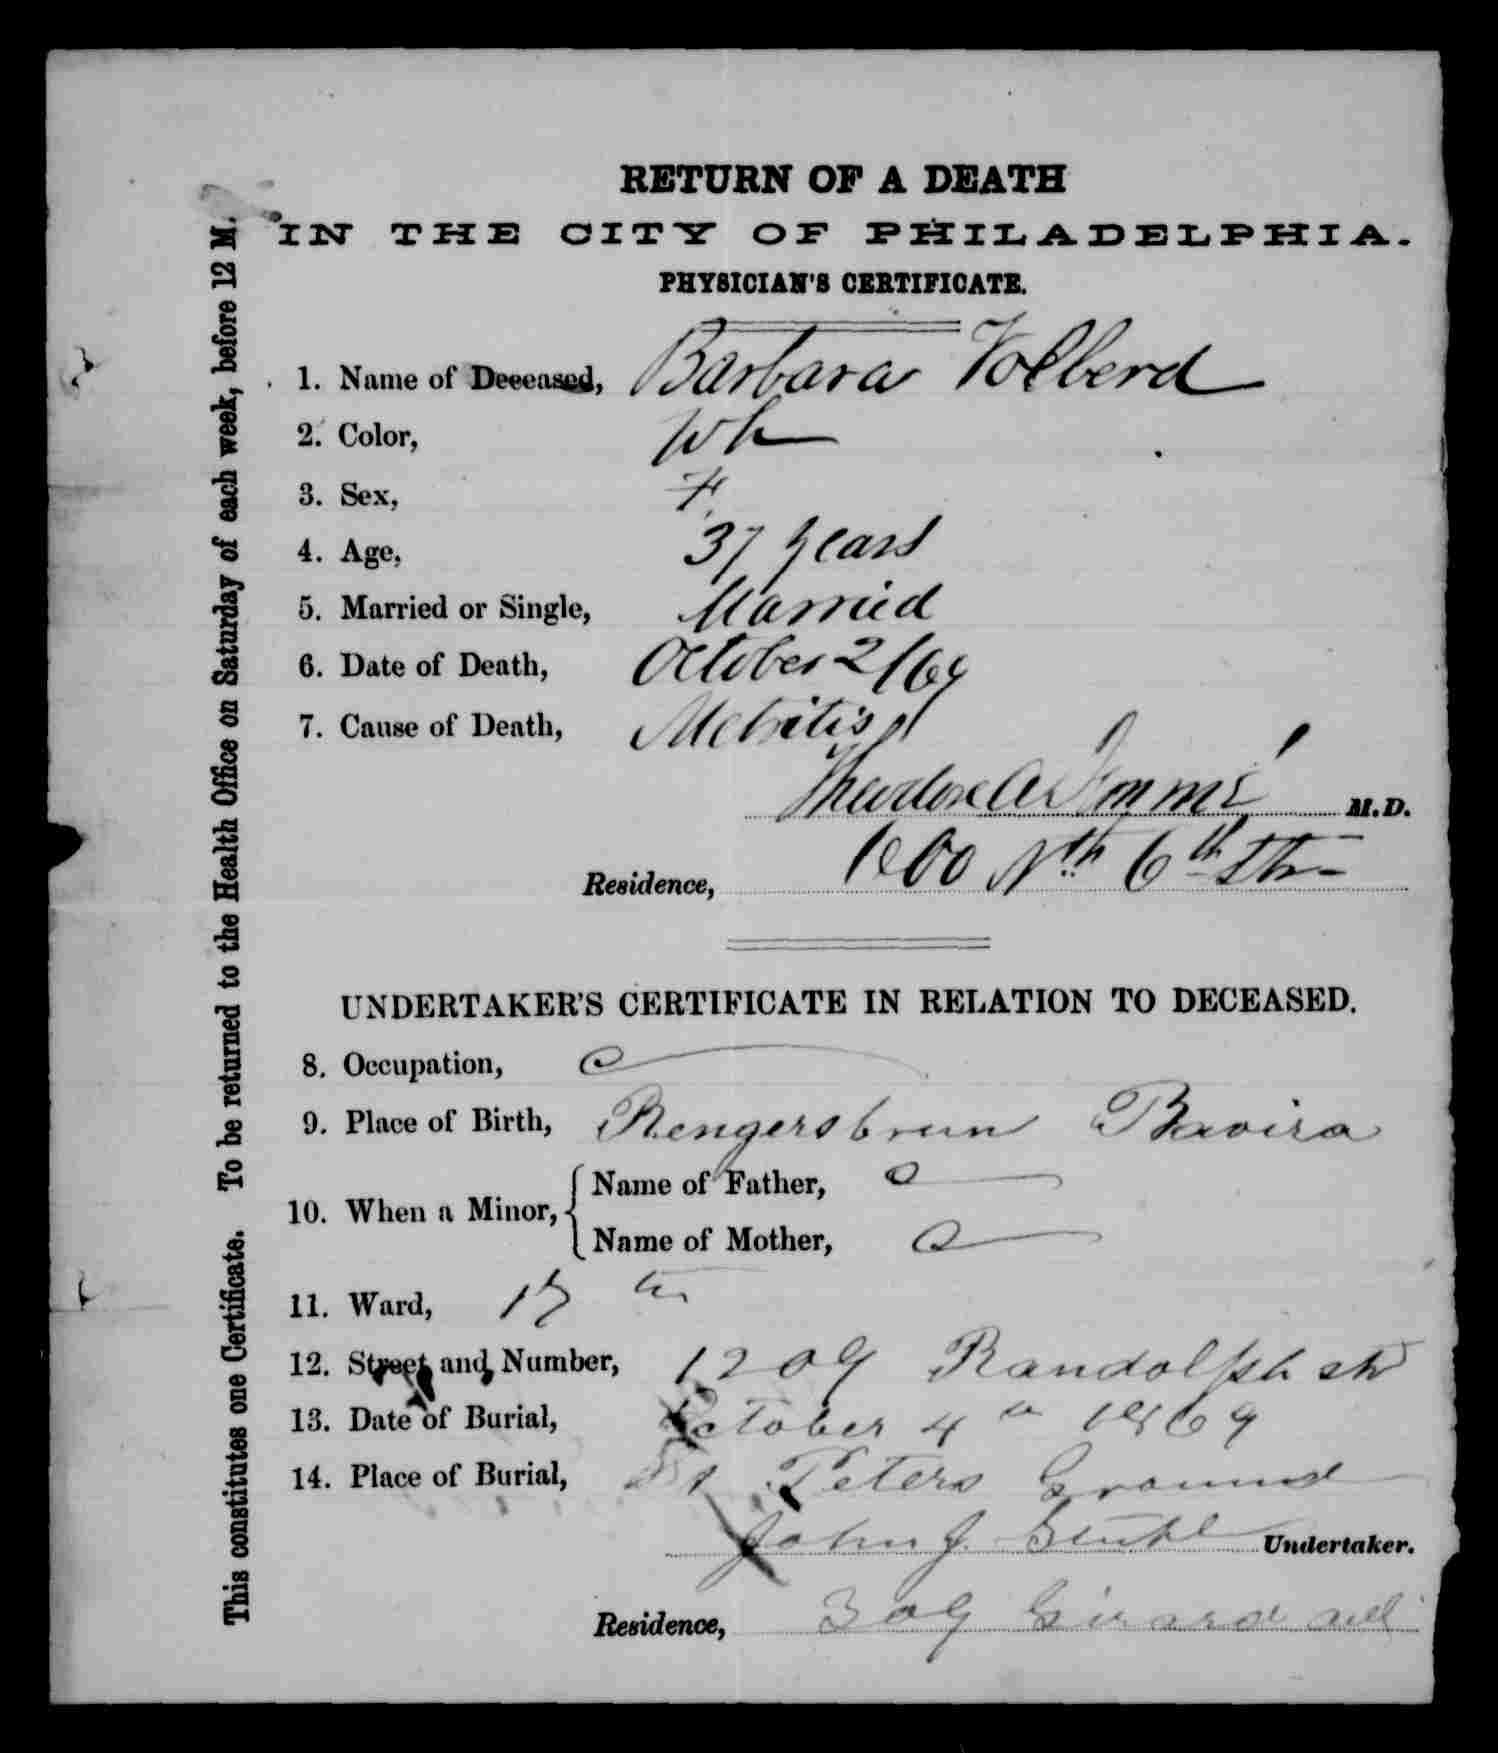 RETURN OF A DEATH
IN THE CITY OF PHILADELPHIA.
PHYSICIAN'S CERTIFICATE.
1. Name of Deceased, Barbara Volberd
2. Color, Wh
3. Sex, F.
4. Age, 37 years
5. Married or Single, Married
6. Date of Death, October 2/69
7. Cause of Death, Metritis
Theodore A. Demmé M.D.
Residence, 1000 Nth 6th Str
UNDERTAKER'S CERTIFICATE IN RELATION TO DECEASED.
8. Occupation,
9. Place of Birth, Rengersbrun Bavira
10. When a Minor, { Name of Father,
Name of Mother,
11. Ward, 17 th
12. Street and Number, 1209 Randolph str
13. Date of Burial, October 4th 1869
14. Place of Burial, St Peters Ground
John J. Undertaker.
Residence, 309 Girard av
This constitutes one Certificate. To be returned to the Health Office on Saturday of each week, before 12 M.